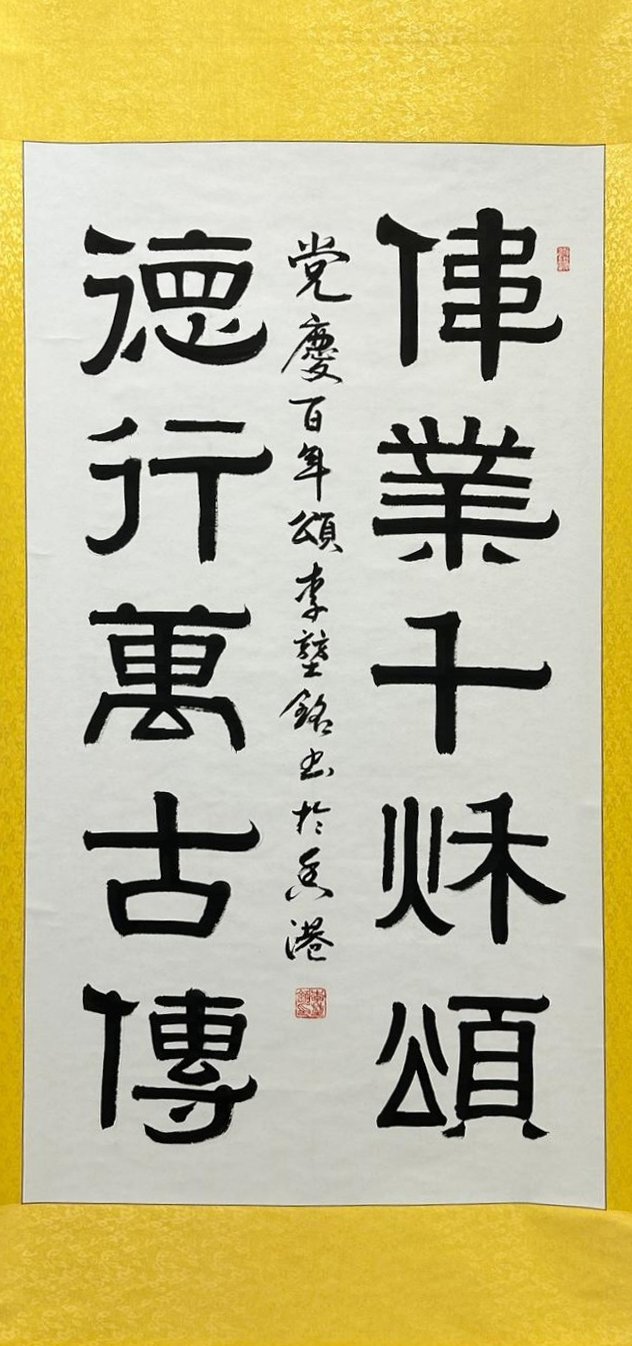 偉業千秌頌
党慶百年頌李銘书於香港
德行萬古傳